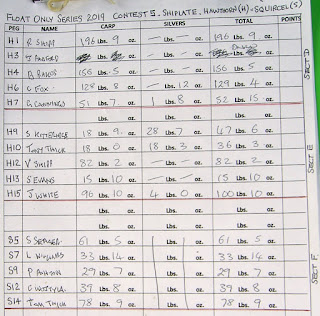 FLOAT ONLY SERIES 2019 CONTEST 5. SHIPLATE. HAWTHORN(H)=SQUIRREL(S)
PEG NAME CARP SILVERS TOTAL POINTS
H1 R SHIPP 196 Lbs. 9 oz. Lbs. oz. 196 Lbs. 9 oz.
H3 Lbs. oz. Lbs. oz. Lbs. oz.
H4 156 Lbs. 5 oz. Lbs. oz. 156 Lbs. 5 oz.
H6 FOX 128 Lbs. 8 oz. Lbs. 12 oz. 129 Lbs. 4 oz.
H7 G CUNNINGS 51 Lbs. 7 oz. 1 Lbs. 8 oz. 52 Lbs. 15 oz.
SECT D
Lbs. oz. Lbs. oz. Lbs. oz.
H9 S 18 Lbs. 9 oz. 28 Lbs. 7 oz. 47 Lbs. 6 oz.
H10 TONY THICK 18 Lbs. 0 oz. 18 Lbs. 3 oz. 36 Lbs. 3 oz.
H12 V SHIPP 82 Lbs. 2 oz. Lbs. oz. 82 Lbs. 2 oz.
H13 S EVANS 15 Lbs. 10 oz. Lbs. oz. 15 Lbs. 10 oz.
H15 J WHITE 96 Lbs. 10 oz. 4 Lbs. 0 oz. 100 Lbs. 10 oz.
SECT E
Lbs. oz. Lbs. oz. Lbs. oz.
Lbs. oz. Lbs. oz. Lbs. oz.
S5 S 61 Lbs. 5 oz. Lbs. oz. 61 Lbs. 5 oz.
S7 L WILLIAMS 33 Lbs. 14 oz. Lbs. oz. 33 Lbs. 14 oz.
S9 P 29 Lbs. 7 oz. Lbs. oz. 29 Lbs. 7 oz.
S12 39 Lbs. 8 oz. Lbs. oz. 39 Lbs. 8 oz.
S14 TOM THICK 78 Lbs. 9 oz. Lbs. oz. 78 Lbs. 9 oz.
SECT F